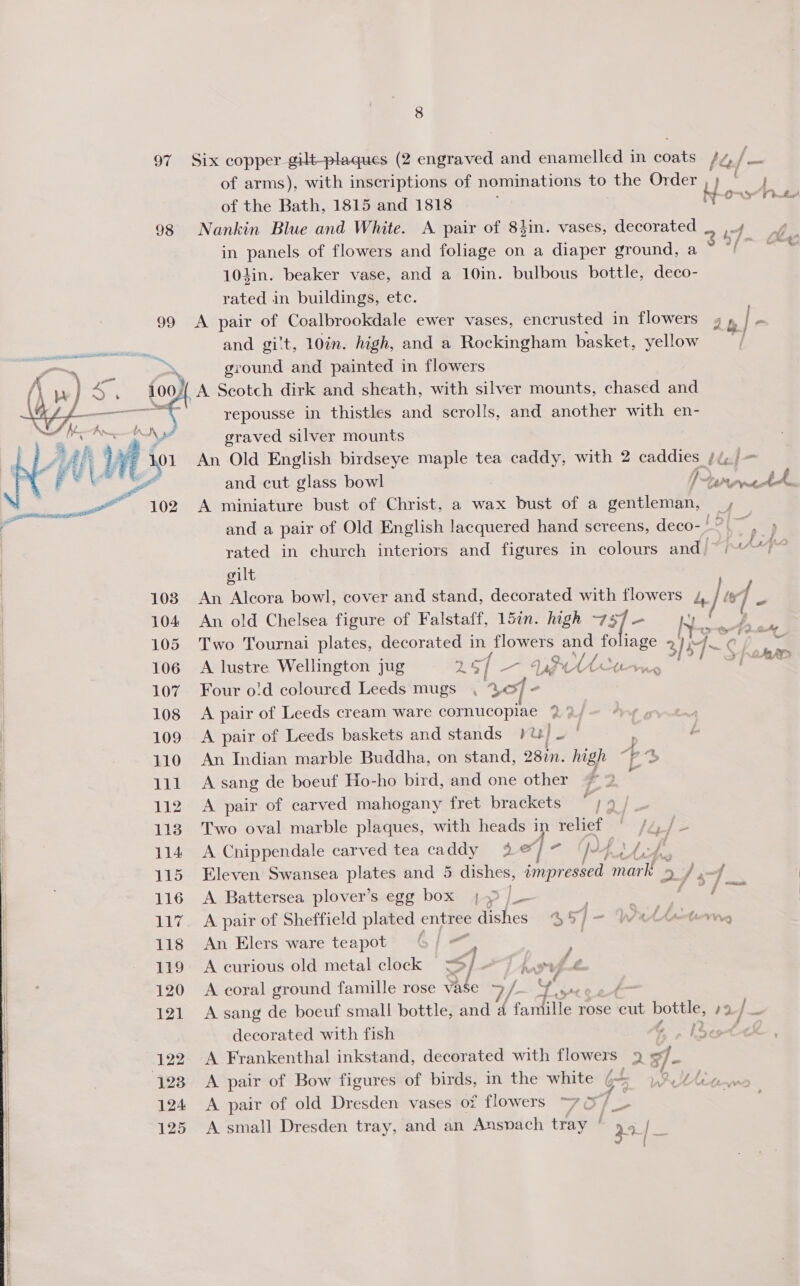 8
97 Six copper gilt plaques (2 engraved and enamelled in coats
of arms), with inscriptions of nominations to the Order
of the Bath, 1815 and 1818
98 Nankin Blue and White. A pair of 8½in. vases, decorated
in panels of flowers and foliage on a diaper ground, a
10½in. beaker vase, and a 10in. bulbous bottle, deco-
rated in buildings, etc.
99 A pair of Coalbrookdale ewer vases, encrusted in flowers
and gilt, 10in. high, and a Rockingham basket, yellow
ground and painted in flowers
100 A Scotch dirk and sheath, with silver mounts, chased and
repousse in thistles and scrolls, and another with en-
graved silver mounts
101 An Old English birdseye maple tea caddy, with 2 caddies
and cut glass bowl
102 A miniature bust of Christ, a wax bust of a gentleman,
and a pair of Old English lacquered hand screens, deco-
rated in church interiors and figures in colours and
gilt
103 An Alcora bowl, cover and stand, decorated with flowers
104 An old Chelsea figure of Falstaff, 15in. high 75/-
105 Two Tournai plates, decorated in flowers and foliage
106 A lustre Wellington jug 25/-
107 Four old coloured Leeds mugs
108 A pair of Leeds cream ware cornucopiae
109 A pair of Leeds baskets and stands
110 An Indian marble Buddha, on stand, 28in. high
111 A sang de boeuf Ho-ho bird, and one other
112 A pair of carved mahogany fret brackets
113 Two oval marble plaques, with heads in relief
114 A Chippendale carved tea caddy
115 Eleven Swansea plates and 5 dishes, impressed mark
116 A Battersea plover's egg box
117 A pair of Sheffield plated entree dishes
118 An Elers ware teapot
119 A curious old metal clock
120 A coral ground famille rose vase
121 A sang de boeuf small bottle, and a famille rose cut bottle,
decorated with fish
122 A Frankenthal inkstand, decorated with flowers
123 A pair of Bow figures of birds, in the white
124 A pair of old Dresden vases of flowers
125 A small Dresden tray, and an Anspach tray